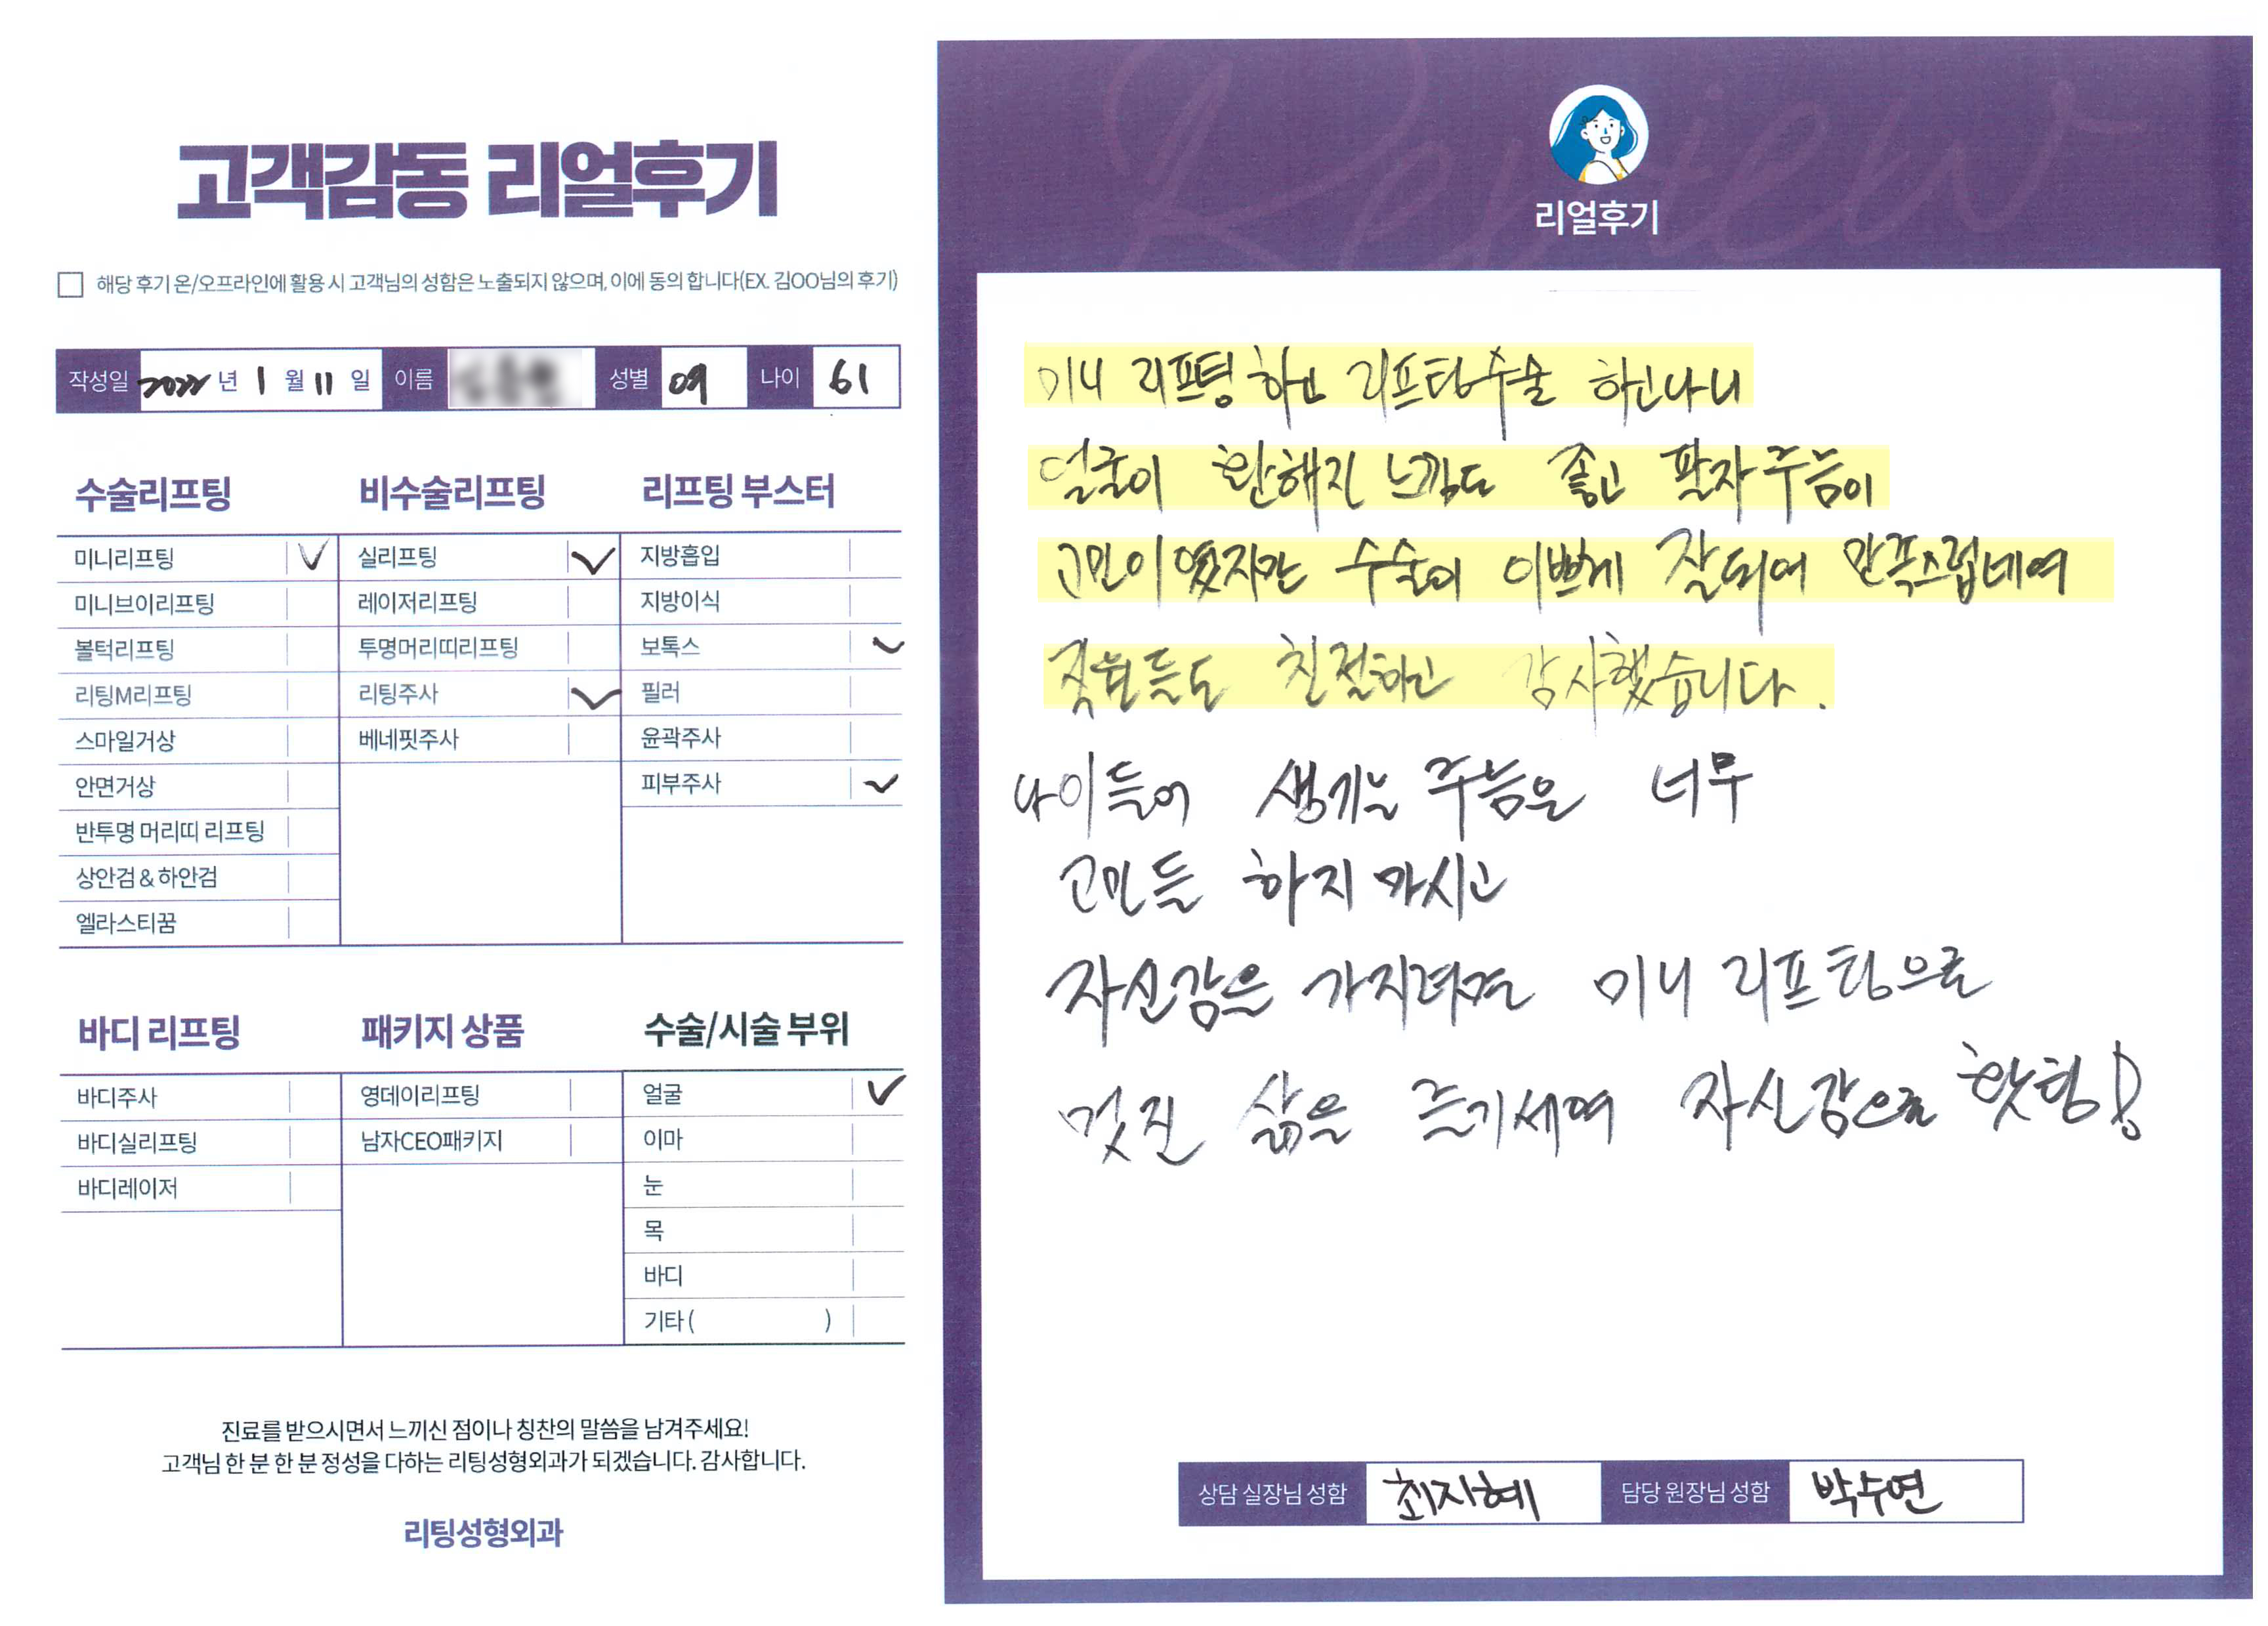 고객감동 리얼후기
해당 후기 온/오프라인에 활용 시 고객님의 성함은 노출되지 않으며, 이에 동의 합니다(EX. 김OO님의 후기)
작성일 2022 년 1 월 11 일 이름 성별 여 나이 61
수술리프팅
미니리프팅
미니브이리프팅
볼턱리프팅
리팅M리프팅
스마일거상
안면거상
반투명 머리띠 리프팅
상안검 & 하안검
엘라스티꿈
비수술리프팅
실리프팅
레이저리프팅
투명머리띠리프팅
리팅주사
베네핏주사
리프팅 부스터
지방흡입
지방이식
보톡스
필러
윤곽주사
피부주사
바디 리프팅
바디주사
바디실리프팅
바디레이저
패키지 상품
영데이리프팅
남자CEO패키지
수술/시술 부위
얼굴
이마
눈
목
바디
기타 ( )
진료를 받으시면서 느끼신 점이나 칭찬의 말씀을 남겨주세요!
고객님 한 분 한 분 정성을 다하는 리팅성형외과가 되겠습니다. 감사합니다.
리팅성형외과
Review
리얼후기
미니 리프팅 하고 리프팅수술 하고나니
얼굴이 환해진 느낌도 좋고 팔자주름이
고민이였지만 수술이 이쁘게 잘되어 만족스럽네여
직원들도 친절하고 감사했습니다.
나이들어 생기는 주름은 너무
고민들 하지 마시고
자신감을 가지려면 미니 리프팅으로
멋진 삶을 즐기세여 자신감으로 홧팅!
상담 실장님 성함 최지혜 담당 원장님 성함 박수연